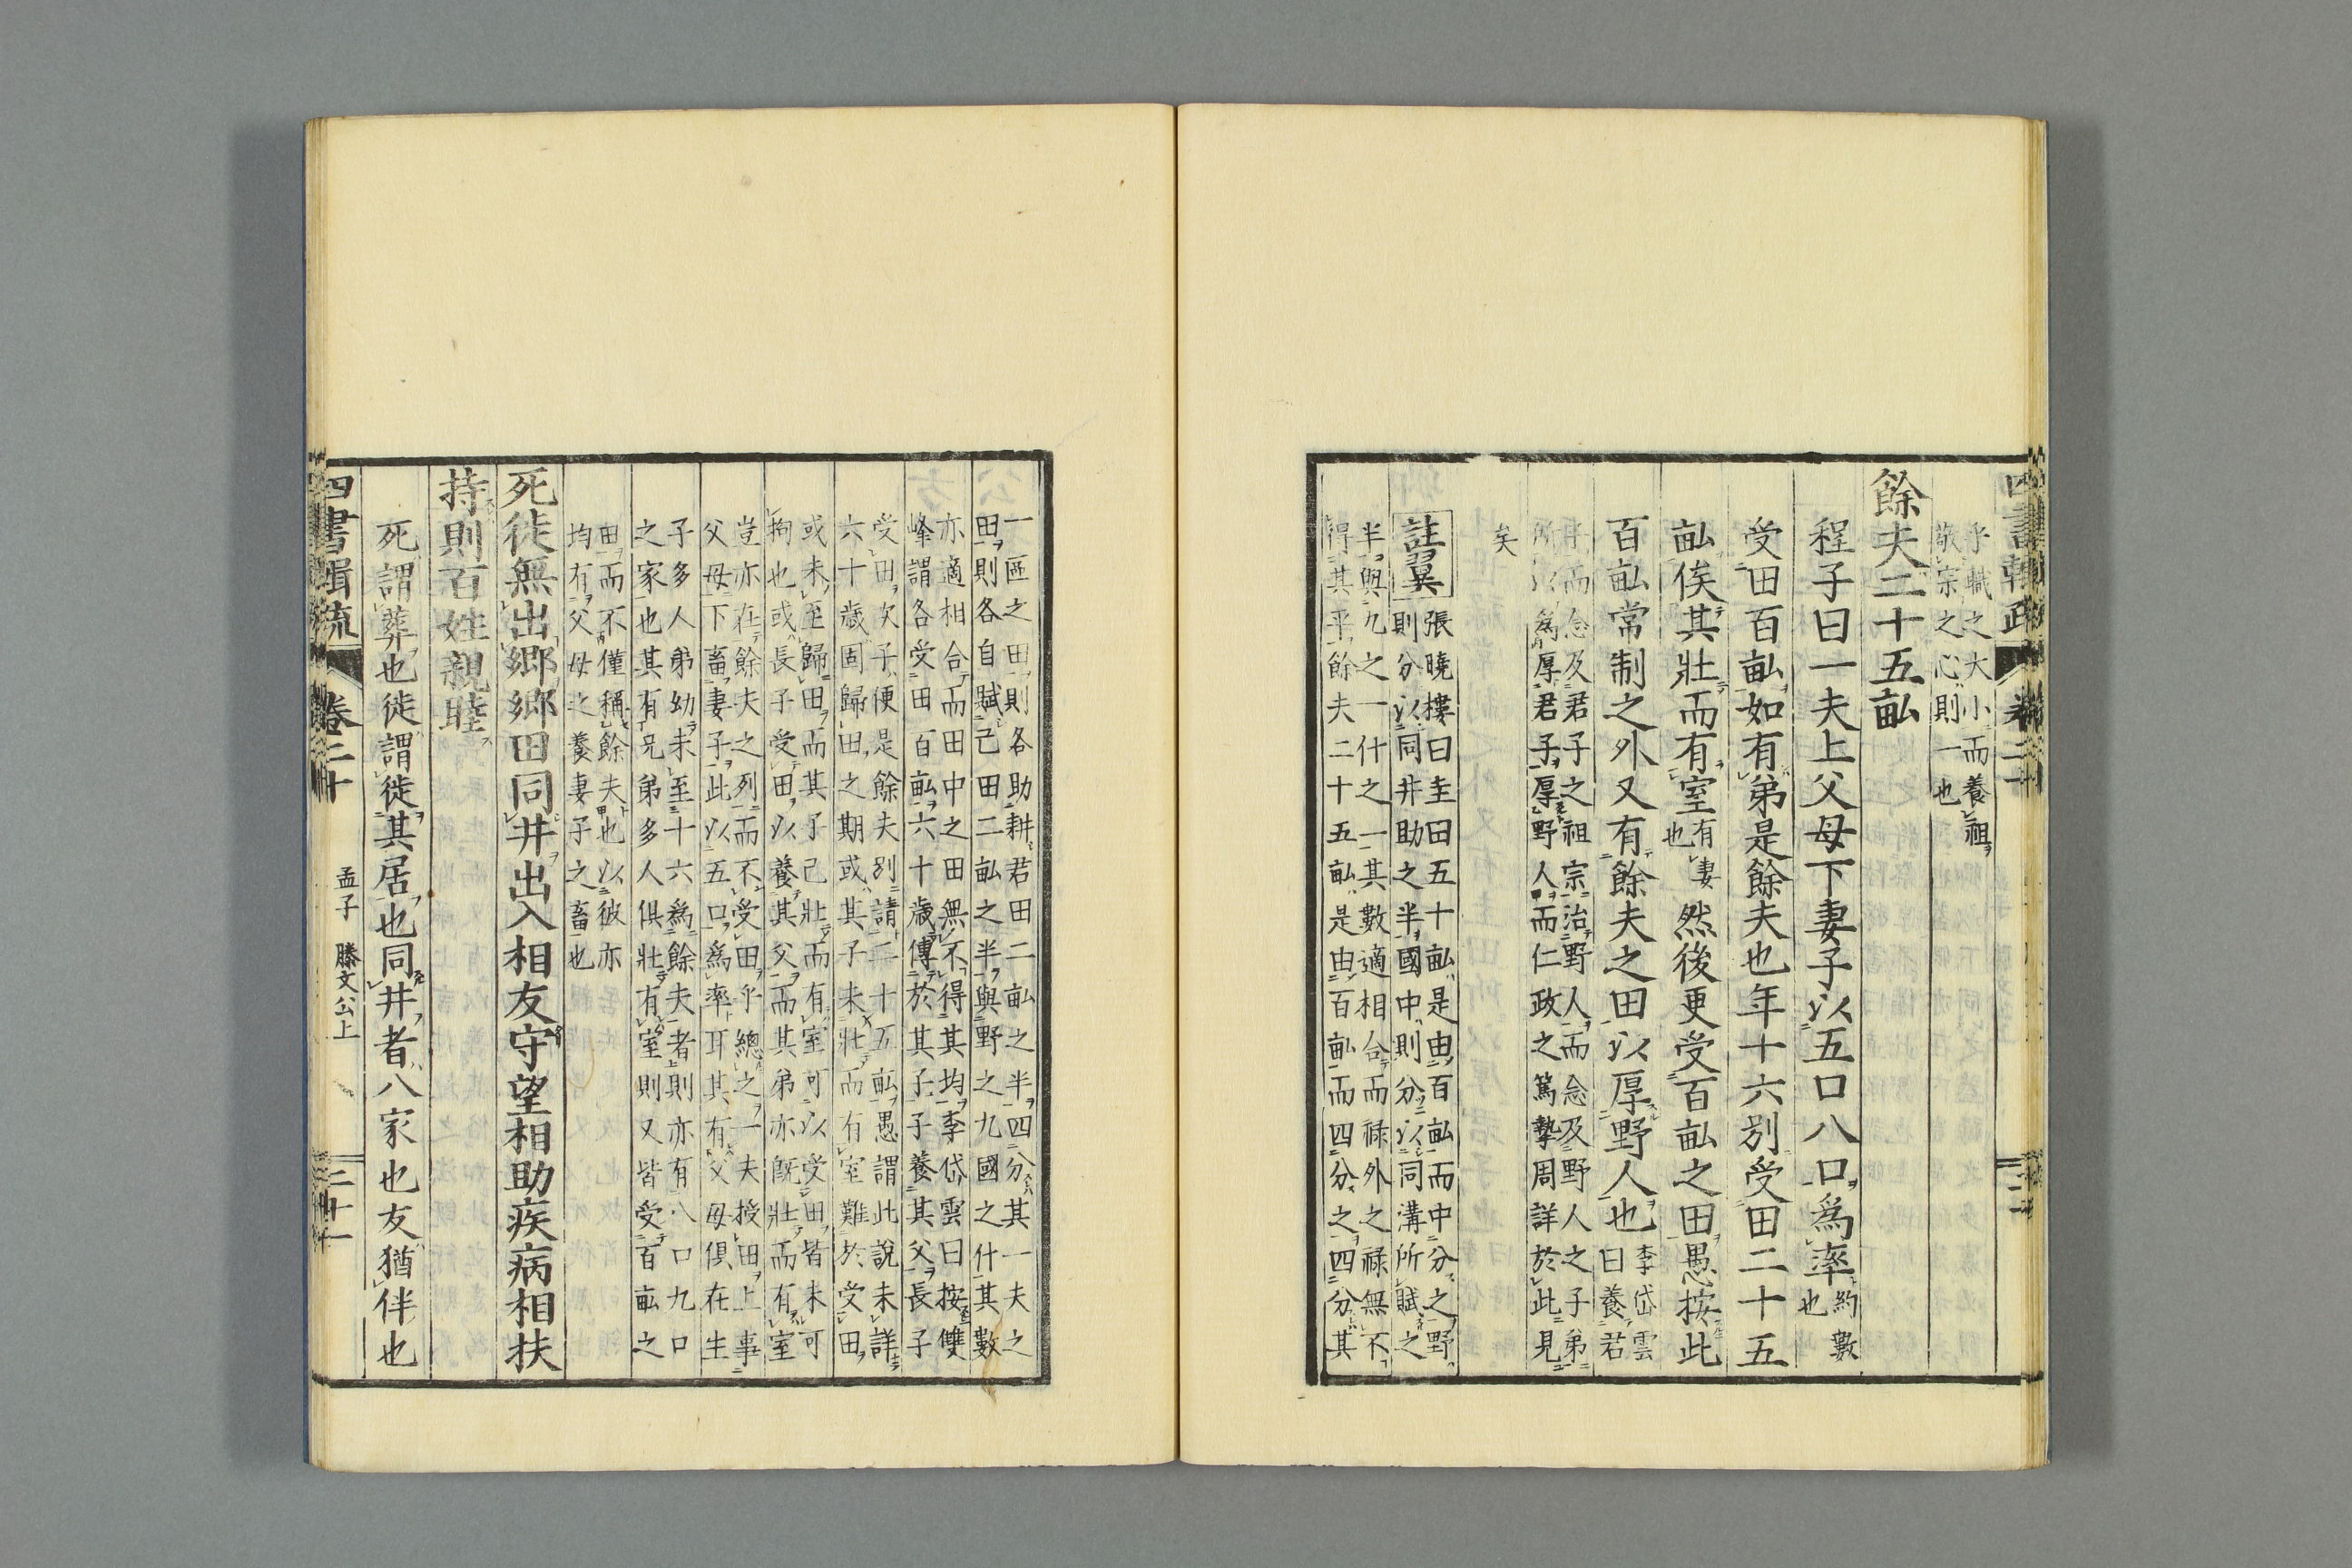 乎職之大小而養祖
敬宗之心則一也
餘夫二十五畝
程子曰一夫上父母下妻子以五口八口爲率約數
也
受田百畝如有弟是餘夫也年十六別受田二十五
畝俟其壯而有室有妻
也然後更受百畝之田愚按此
百畝常制之外又有餘夫之田以厚野人也李岱雲
曰養君
子而念及君子之祖宗治野人而念及野人之子弟
所以爲厚君子厚野人而仁政之篤摯周詳於此見
矣
註翼張曉樓曰圭田五十畝是由百畝而中分之野
則分以同井助之半國中則分以同溝所賦之
半與九之一什之一其數適相合而祿外之祿無不
得其平餘夫二十五畝是由百畝而四分之四分其
一區之田則各助耕君田二畝之半四分其一夫之
田則各自賦己田二畝之半與野之九國之什其數
亦適相合而田中之田無不得其均李岱雲曰按雙
峰謂各受田百畝六十歲傳於其子子養其父長子
受田次子便是餘夫別請二十五畝愚謂此說未詳
六十歲固歸田之期或其子未壯而有室難於受田
或未至歸田而其子己壯而有室可以受田皆未可
拘也或長子受田以養其父而其弟亦旣壯而有室
豈亦在餘夫之列而不受田乎總之一夫授田上事
父母下畜妻子此以五口爲率耳其有父母俱在生
子多人弟幼未至十六爲餘夫者則亦有八口九口
之家也其有兄弟多人俱壯有室則又皆受百畝之
田而不僅稱餘夫也以彼亦
均有父母之養妻子之畜也
死徙無出鄉鄉田同井出入相友守望相助疾病相扶
持則百姓親睦
死謂葬也徙謂徙其居也同井者八家也友猶伴也
四書輯疏 卷二十 孟子 滕文公上 二十一